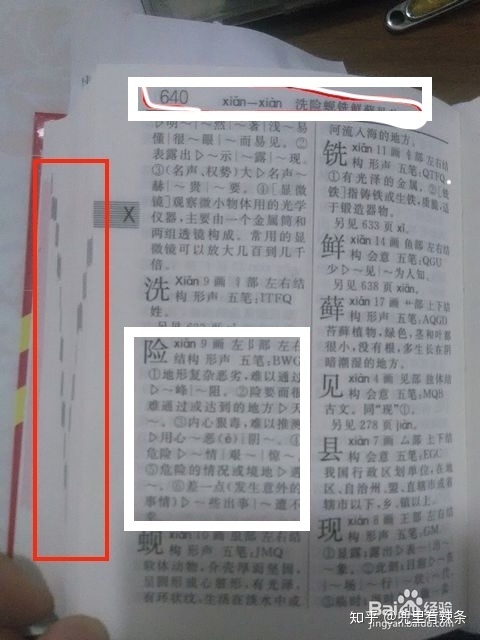 640 xiǎn—xiàn 洗险蚬铣鲜藓见
▷明~|~然|~著|浅~易
懂|很~眼|~而易见。②
表露出▷~示|~露|~现。
③(名声、权势)大▷名声~
赫|~贵|~要。④[显微
镜]观察微小物体用的光学
仪器,主要由一个金属筒和
两组透镜构成。常用的显
微镜可以放大几百到几千
倍。
X
洗 xiǎn 9画 氵部 左右结
构 形声 五笔:ITFQ
姓。
险 xiǎn 9画 左阝部 左右
结构 形声 五笔:BWG
①地形复杂恶劣,难以通过
▷~峰|~阻。②险要而很
难通过或达到的地方▷天
~。③内心狠毒,难以推测
▷用心~恶(è)|阴~。④
危险▷~情|艰~|惊~
⑤危险的情况或境地▷遇
~。⑥差一点(发生意外的
事情)▷~些出事|~遭不
蚬 xiǎn 10画 虫部 左右结
构 形声 五笔:JMQ
软体动物,介壳厚而坚固,
呈圆形或心脏形,有光泽,
有环状纹,生活在淡水中或
河流入海的地方。
铣 xiǎn 11画 钅部 左右结
构 形声 五笔:QTFQ
①有光泽的金属。②[铣
铁]指铸铁或生铁,质脆,适
于锻造器物。
另见 633页 xǐ。
鲜 xiǎn 14画 鱼部 左右结
构 会意 五笔:QGU
少▷~见|~为人知。
另见 638页 xiān。
藓 xiǎn 17画 艹部 上下结
构 形声 五笔:AQGD
苔藓植物,绿色,茎和叶都
很小,没有根,多生长在阴
暗潮湿的地方。
见 xiàn 4画 见部 独体结
构 会意 五笔:MQB
古文。同“现”①。
另见 278页 jiàn。
县 xiàn 7画 厶部 上下结
构 会意 五笔:EGC
我国行政区划单位,在地
区、自治州、盟、直辖市或省
辖市以下,乡、镇以上。
现 xiàn 8画 王部 左右结
构 形声 五笔:GM
①显露;露出▷表~|出~
~象。②此刻;目前▷~在
|~场|~行|~状|~代
知乎 @兜里有辣条
Baidu经验
jingyan.baidu.com